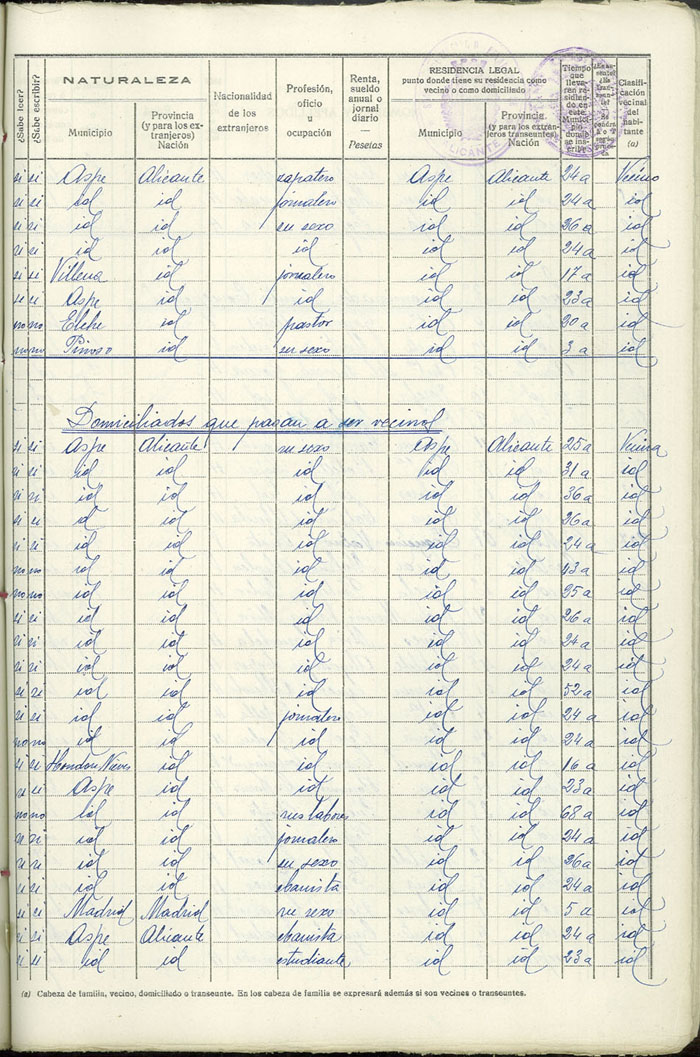 ¿Sabe leer? ¿Sabe escribir? NATURALEZA Nacionalidad de los extranjeros Profesión, oficio u ocupación Renta, sueldo anual o jornal diario — Pesetas RESIDENCIA LEGAL punto donde tiene su residencia como vecino o como domiciliado Tiempo que lleva Clasificación vecinal del habitante (a)
Municipio Provincia (y para los extranjeros) Nación Municipio Provincia (y para los extranjeros transeuntes) Nación
si si Aspe Alicante zapatero Aspe Alicante 24 a Vecino
si si id id jornalero id id 24 a id
si si id id su sexo id id 26 a id
si si id id id id id 24 a id
si si Villena id jornalero id id 17 a id
si si Aspe id id id id 23 a id
no no Elche id pastor id id 20 a id
no no Pinoso id su sexo id id 3 a id
Domiciliados que pasan a ser vecinos
si si Aspe Alicante su sexo Aspe Alicante 25 a Vecina
si si id id id id id 31 a id
si si id id id id id 36 a id
si si id id id id id 26 a id
si si id id id id id 24 a id
no no id id id id id 43 a id
no no id id id id id 95 a id
si si id id id id id 26 a id
si si id id id id id 24 a id
si si id id id id id 24 a id
si si id id id id id 52 a id
si si id id jornalero id id 24 a id
no no id id id id id 24 a id
si si Hondon Nieves id id id id 16 a id
si si Aspe id id id id 23 a id
no no id id sus labores id id 68 a id
si si id id jornalero id id 24 a id
si si id id su sexo id id 26 a id
si si id id ebanista id id 24 a id
si si Madrid Madrid su sexo id id 5 a id
si si Aspe Alicante ebanista id id 24 a id
si si id id estudiante id id 23 a id
(a) Cabeza de familia, vecino, domiciliado o transeunte. En los cabeza de familia se expresará además si son vecinos o transeuntes.